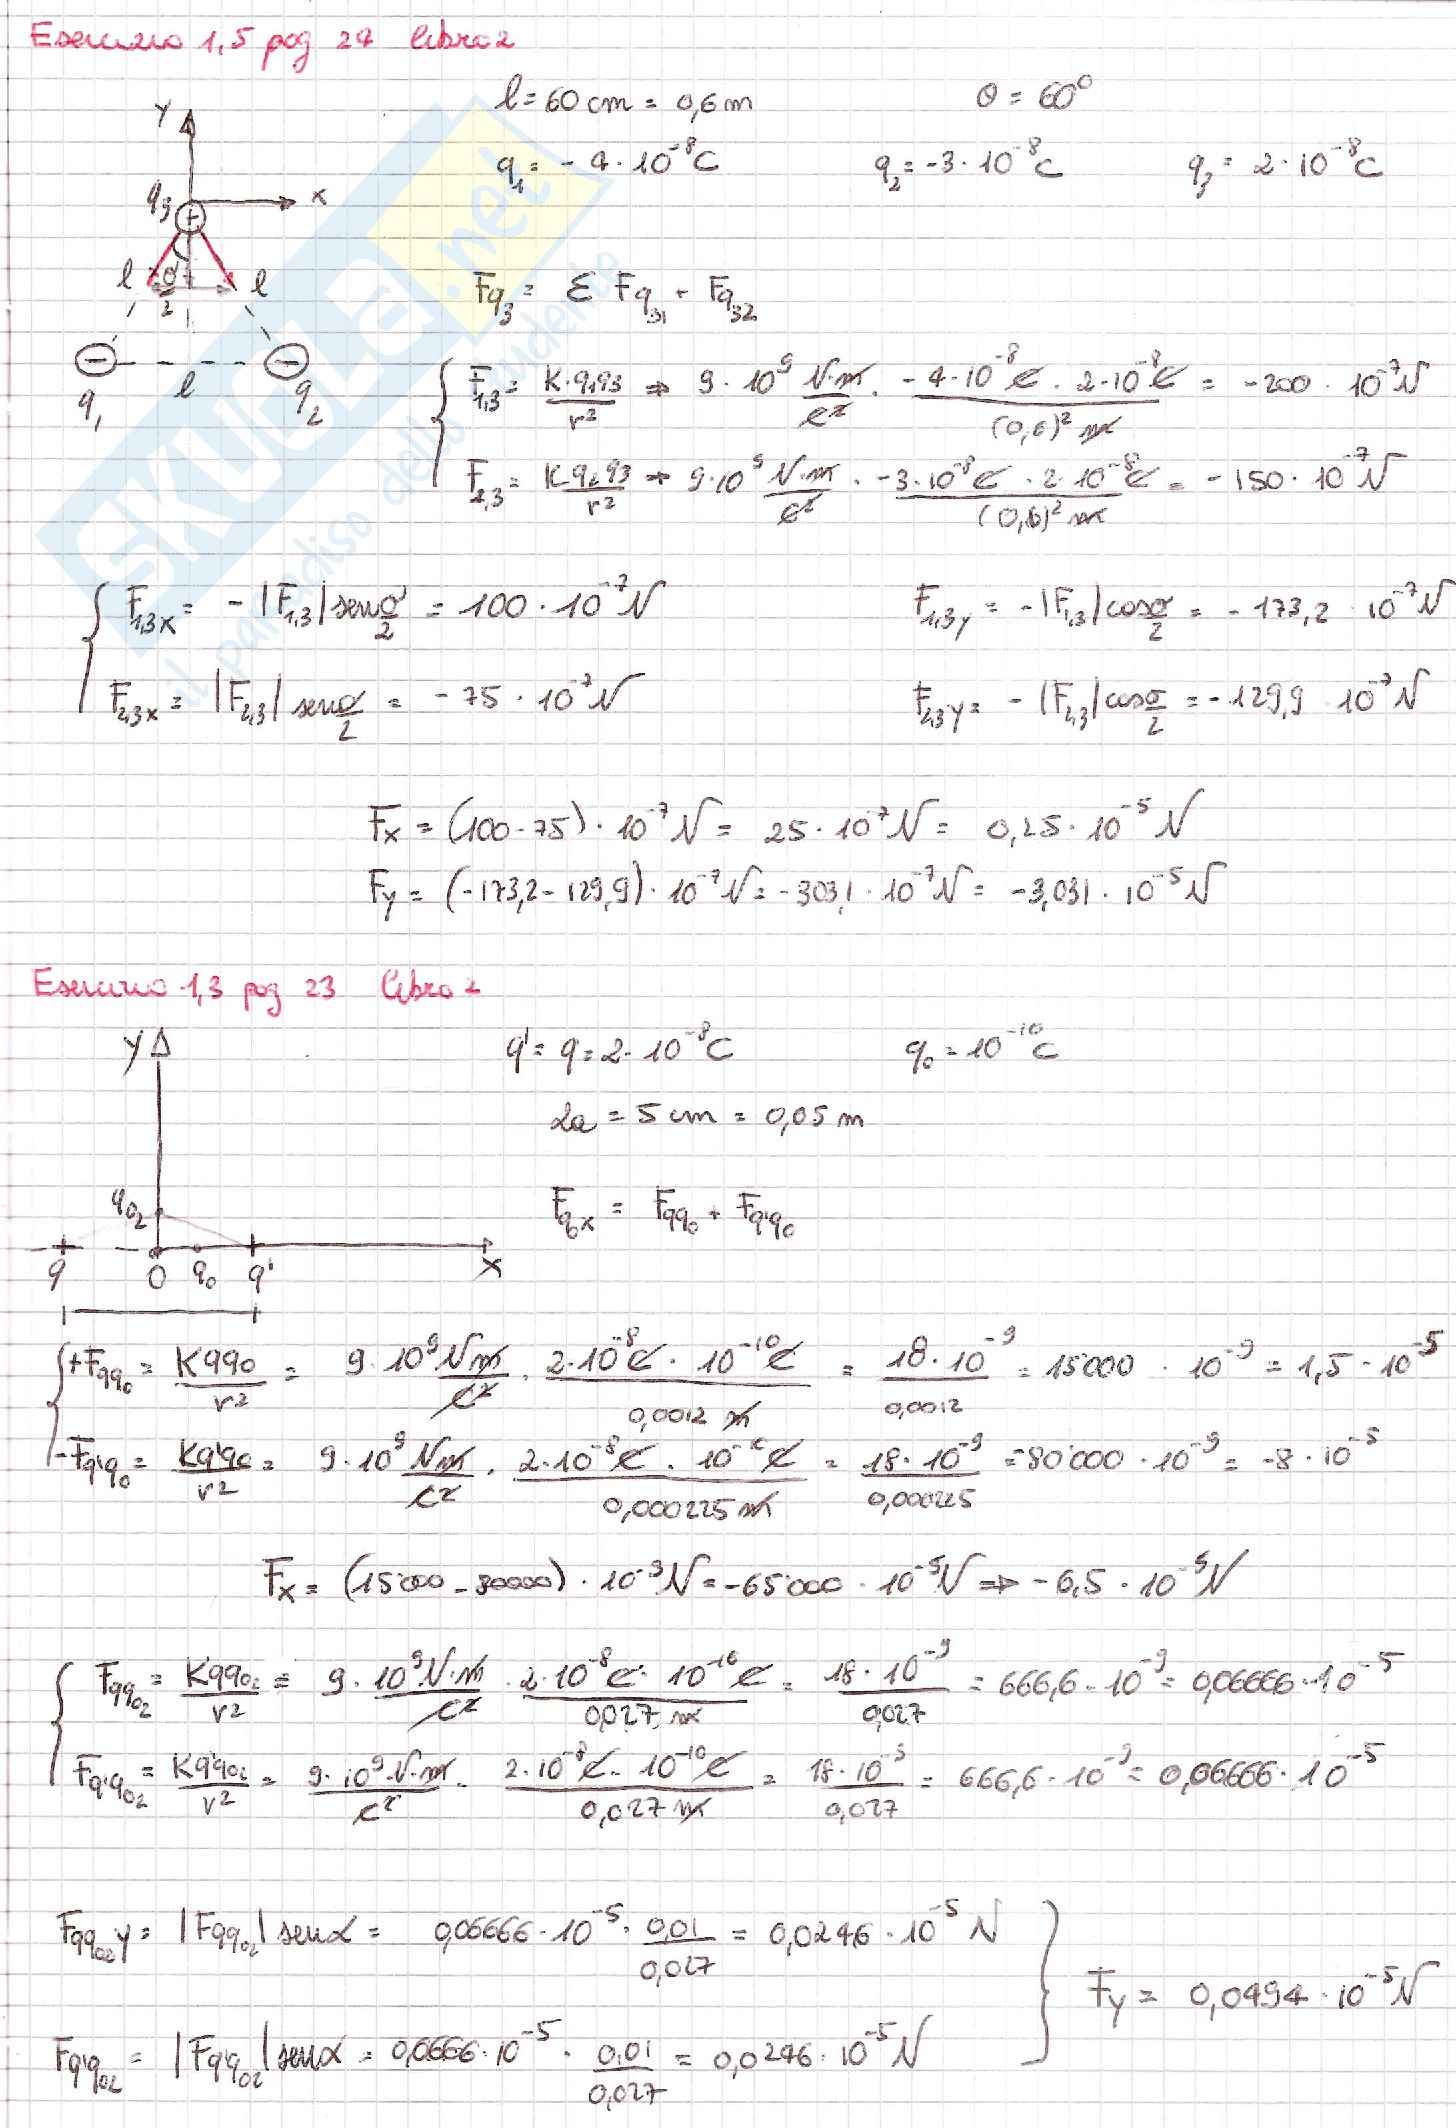 Esercizio 1,5 pag 24 libro 2
l = 60 cm = 0,6 m θ = 60°
q₁ = - 4 · 10⁻⁸ C q₂ = -3 · 10⁻⁸ C q₃ = 2 · 10⁻⁸ C
y
q₃ + x
l σ/2 l
F_q₃ = Σ F_q₃₁ + F_q₃₂
- l -
q₁ q₂
F₁,₃ = K·q₁q₃/r² ⇒ 9 · 10⁹ N·m/C² · -4·10⁻⁸ C · 2·10⁻⁸ C/(0,6)² m = -200 · 10⁻⁷ N
F₂,₃ = K q₂q₃/r² ⇒ 9·10⁹ N·m/C² · -3·10⁻⁸ C · 2·10⁻⁸ C/(0,6)² m = -150 · 10⁻⁷ N
F₁,₃x = - |F₁,₃| sen σ/2 = 100 · 10⁻⁷ N F₁,₃y = - |F₁,₃| cos σ/2 = - 173,2 · 10⁻⁷ N
F₂,₃x = |F₂,₃| sen σ/2 = - 75 · 10⁻⁷ N F₂,₃y = - |F₂,₃| cos σ/2 = - 129,9 10⁻⁷ N
Fx = (100 - 75) · 10⁻⁷ N = 25 · 10⁻⁷ N = 0,25 · 10⁻⁵ N
Fy = (-173,2 - 129,9) · 10⁻⁷ N = -303,1 · 10⁻⁷ N = -3,031 · 10⁻⁵ N
Esercizio 1,3 pag 23 libro 2
y q' = q = 2 · 10⁻⁸ C q₀ = 10⁻¹⁰ C
2a = 5 cm = 0,05 m
q₀₂ F_q₀x = F_qq₀ + F_q'q₀
q O q₀ q' x
+F_qq₀ = Kqq₀/r² = 9 · 10⁹ N m/C² · 2·10⁻⁸ C · 10⁻¹⁰ C/0,0012 m = 18 · 10⁻⁹/0,0012 = 15'000 · 10⁻⁹ = 1,5 · 10⁻⁵
-F_q'q₀ = Kq'q₀/r² = 9 · 10⁹ N m/C² · 2·10⁻⁸ C · 10⁻¹⁰ C/0,000225 m = 18 · 10⁻⁹/0,000225 = 80'000 · 10⁻⁹ = -8 · 10⁻⁵
Fx = (15'000 - 80000) · 10⁻⁹ N = -65'000 · 10⁻⁹ N ⇒ - 6,5 · 10⁻⁵ N
F_qq₀₂ = Kqq₀₂/r² = 9 · 10⁹ N·m/C² · 2·10⁻⁸ C · 10⁻¹⁰ C/0,027 m = 18 · 10⁻⁹/0,027 = 666,6 · 10⁻⁹ = 0,06666 · 10⁻⁵
F_q'q₀₂ = Kq'q₀₂/r² = 9 · 10⁹ N·m/C² · 2·10⁻⁸ C · 10⁻¹⁰ C/0,027 m = 18 · 10⁻⁹/0,027 = 666,6 · 10⁻⁹ = 0,06666 · 10⁻⁵
F_qq₀₂y = |F_qq₀₂| sen α = 0,06666 · 10⁻⁵ · 0,01/0,027 = 0,0246 · 10⁻⁵ N
Fy = 0,0494 · 10⁻⁵ N
F_q'q₀₂ = |F_q'q₀₂| sen α = 0,0666 · 10⁻⁵ · 0,01/0,027 = 0,0246 · 10⁻⁵ N
SKUOLA.net
il paradiso dello studente